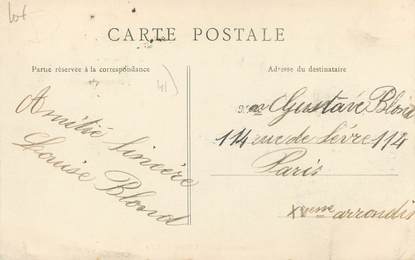 Lot
CARTE POSTALE
Partie réservée à la correspondance
Adresse du destinataire
41)
Amitié Sincère
Louise Blond
Gustave
114 rue de Sèvre 114
Paris
XVeme arrondis